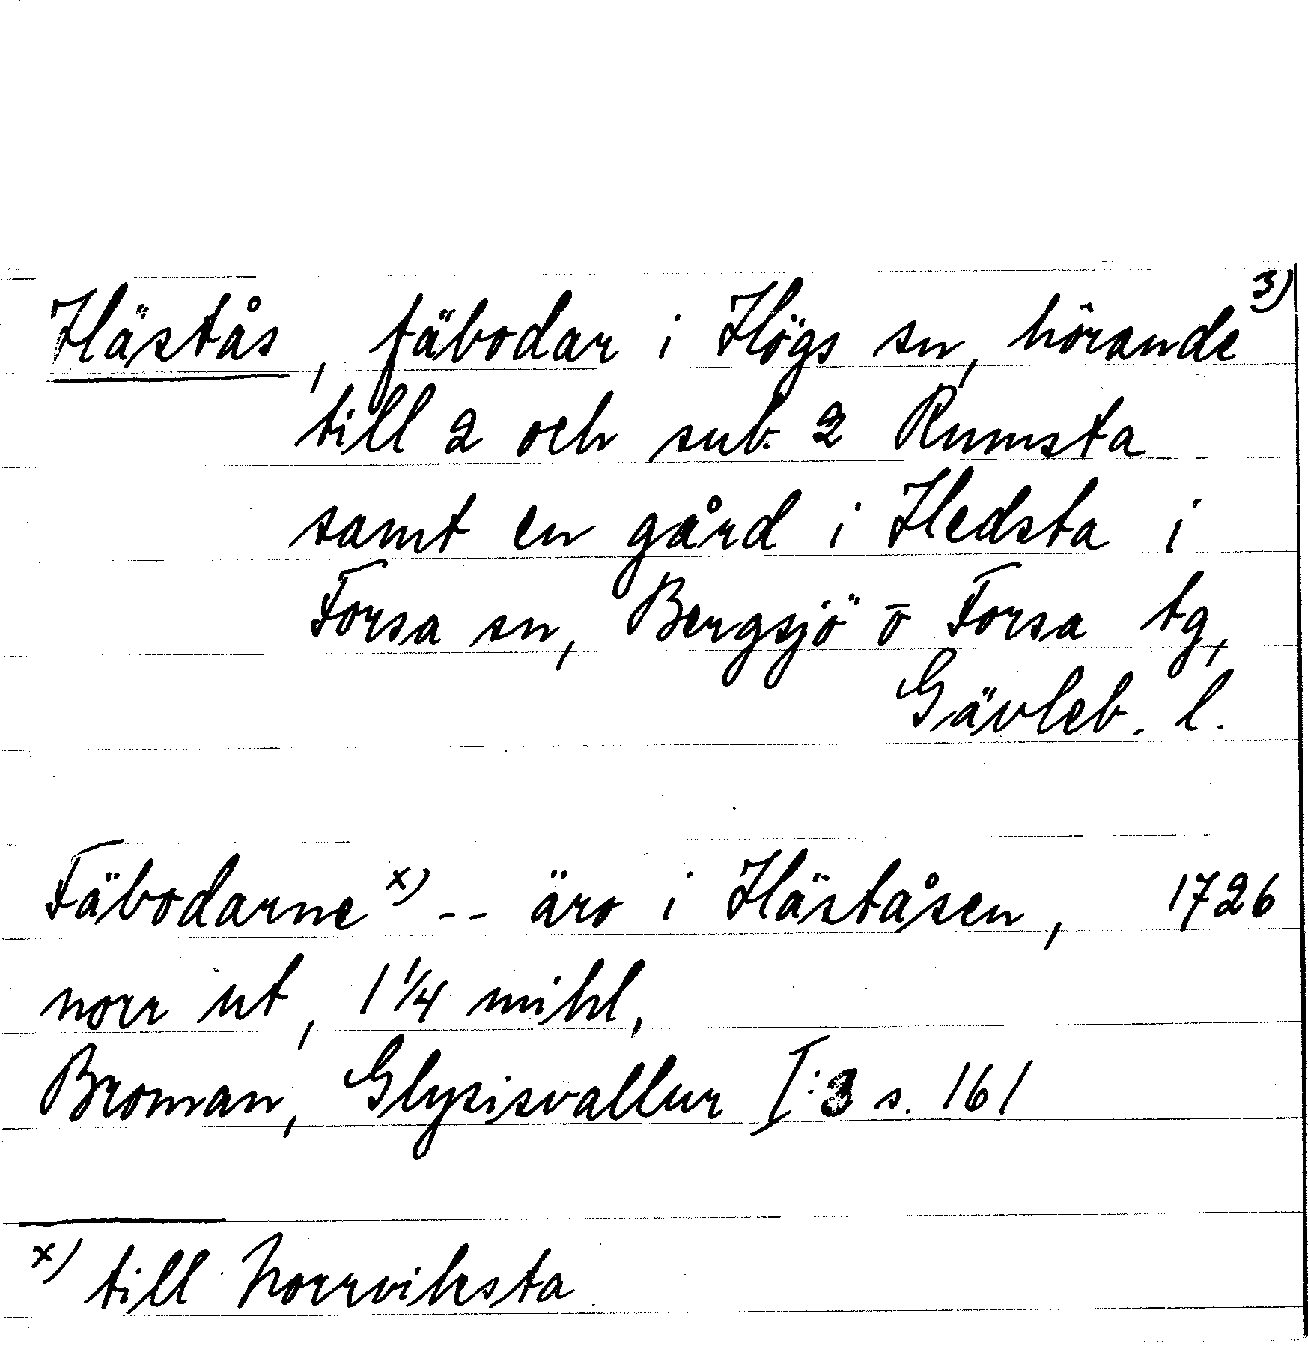 3)
Hästås, fäbodar i Högs sn, hörande
till 2 och sub. 2 Rumsta
samt en gård i Hedsta i
Forsa sn, Bergsjö o Forsa tg,
Gävleb. l.
Fäbodarne x) -- äro i Häståsen, 1726
norr ut, 1 1/4 mihl,
Broman, Glysisvallur I:3 s. 161
x) till Norrviksta